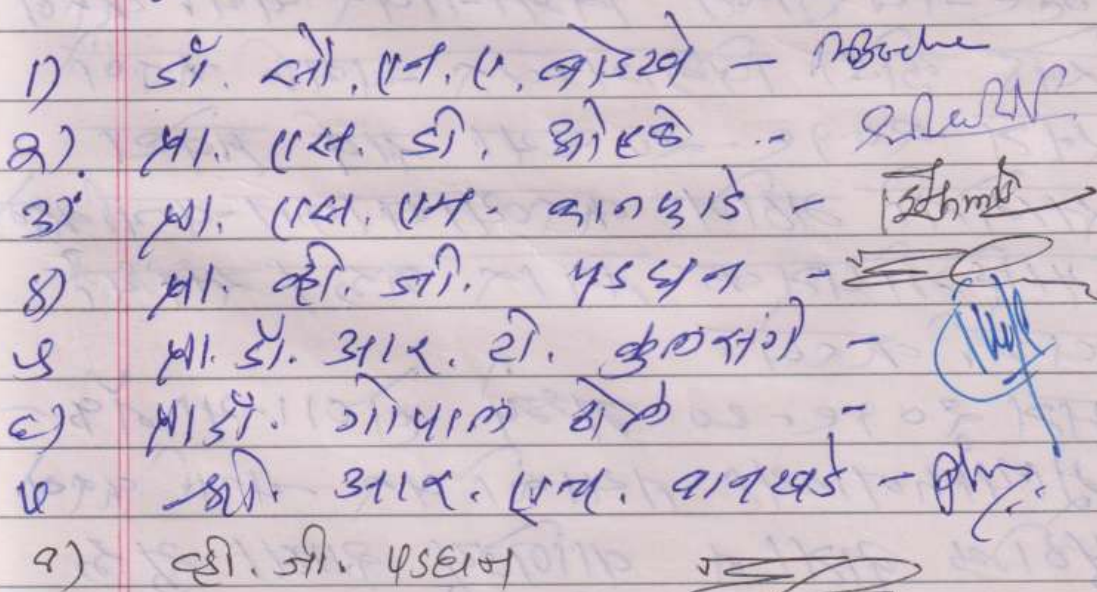 १) डॉ. सौ. एन. ए. बोडखे -
२) प्रा. एस. डी. शेळके -
३) प्रा. एस. एम. कानफाडे -
४) प्रा. व्ही. जी. पडघान -
५ प्रा. डॉ. आर. टी. कुलसंगे -
६) प्रा डॉ. गोपाल बोले -
७ श्री. आर. एम. वानखडे -
१) व्ही. जी. पडघान